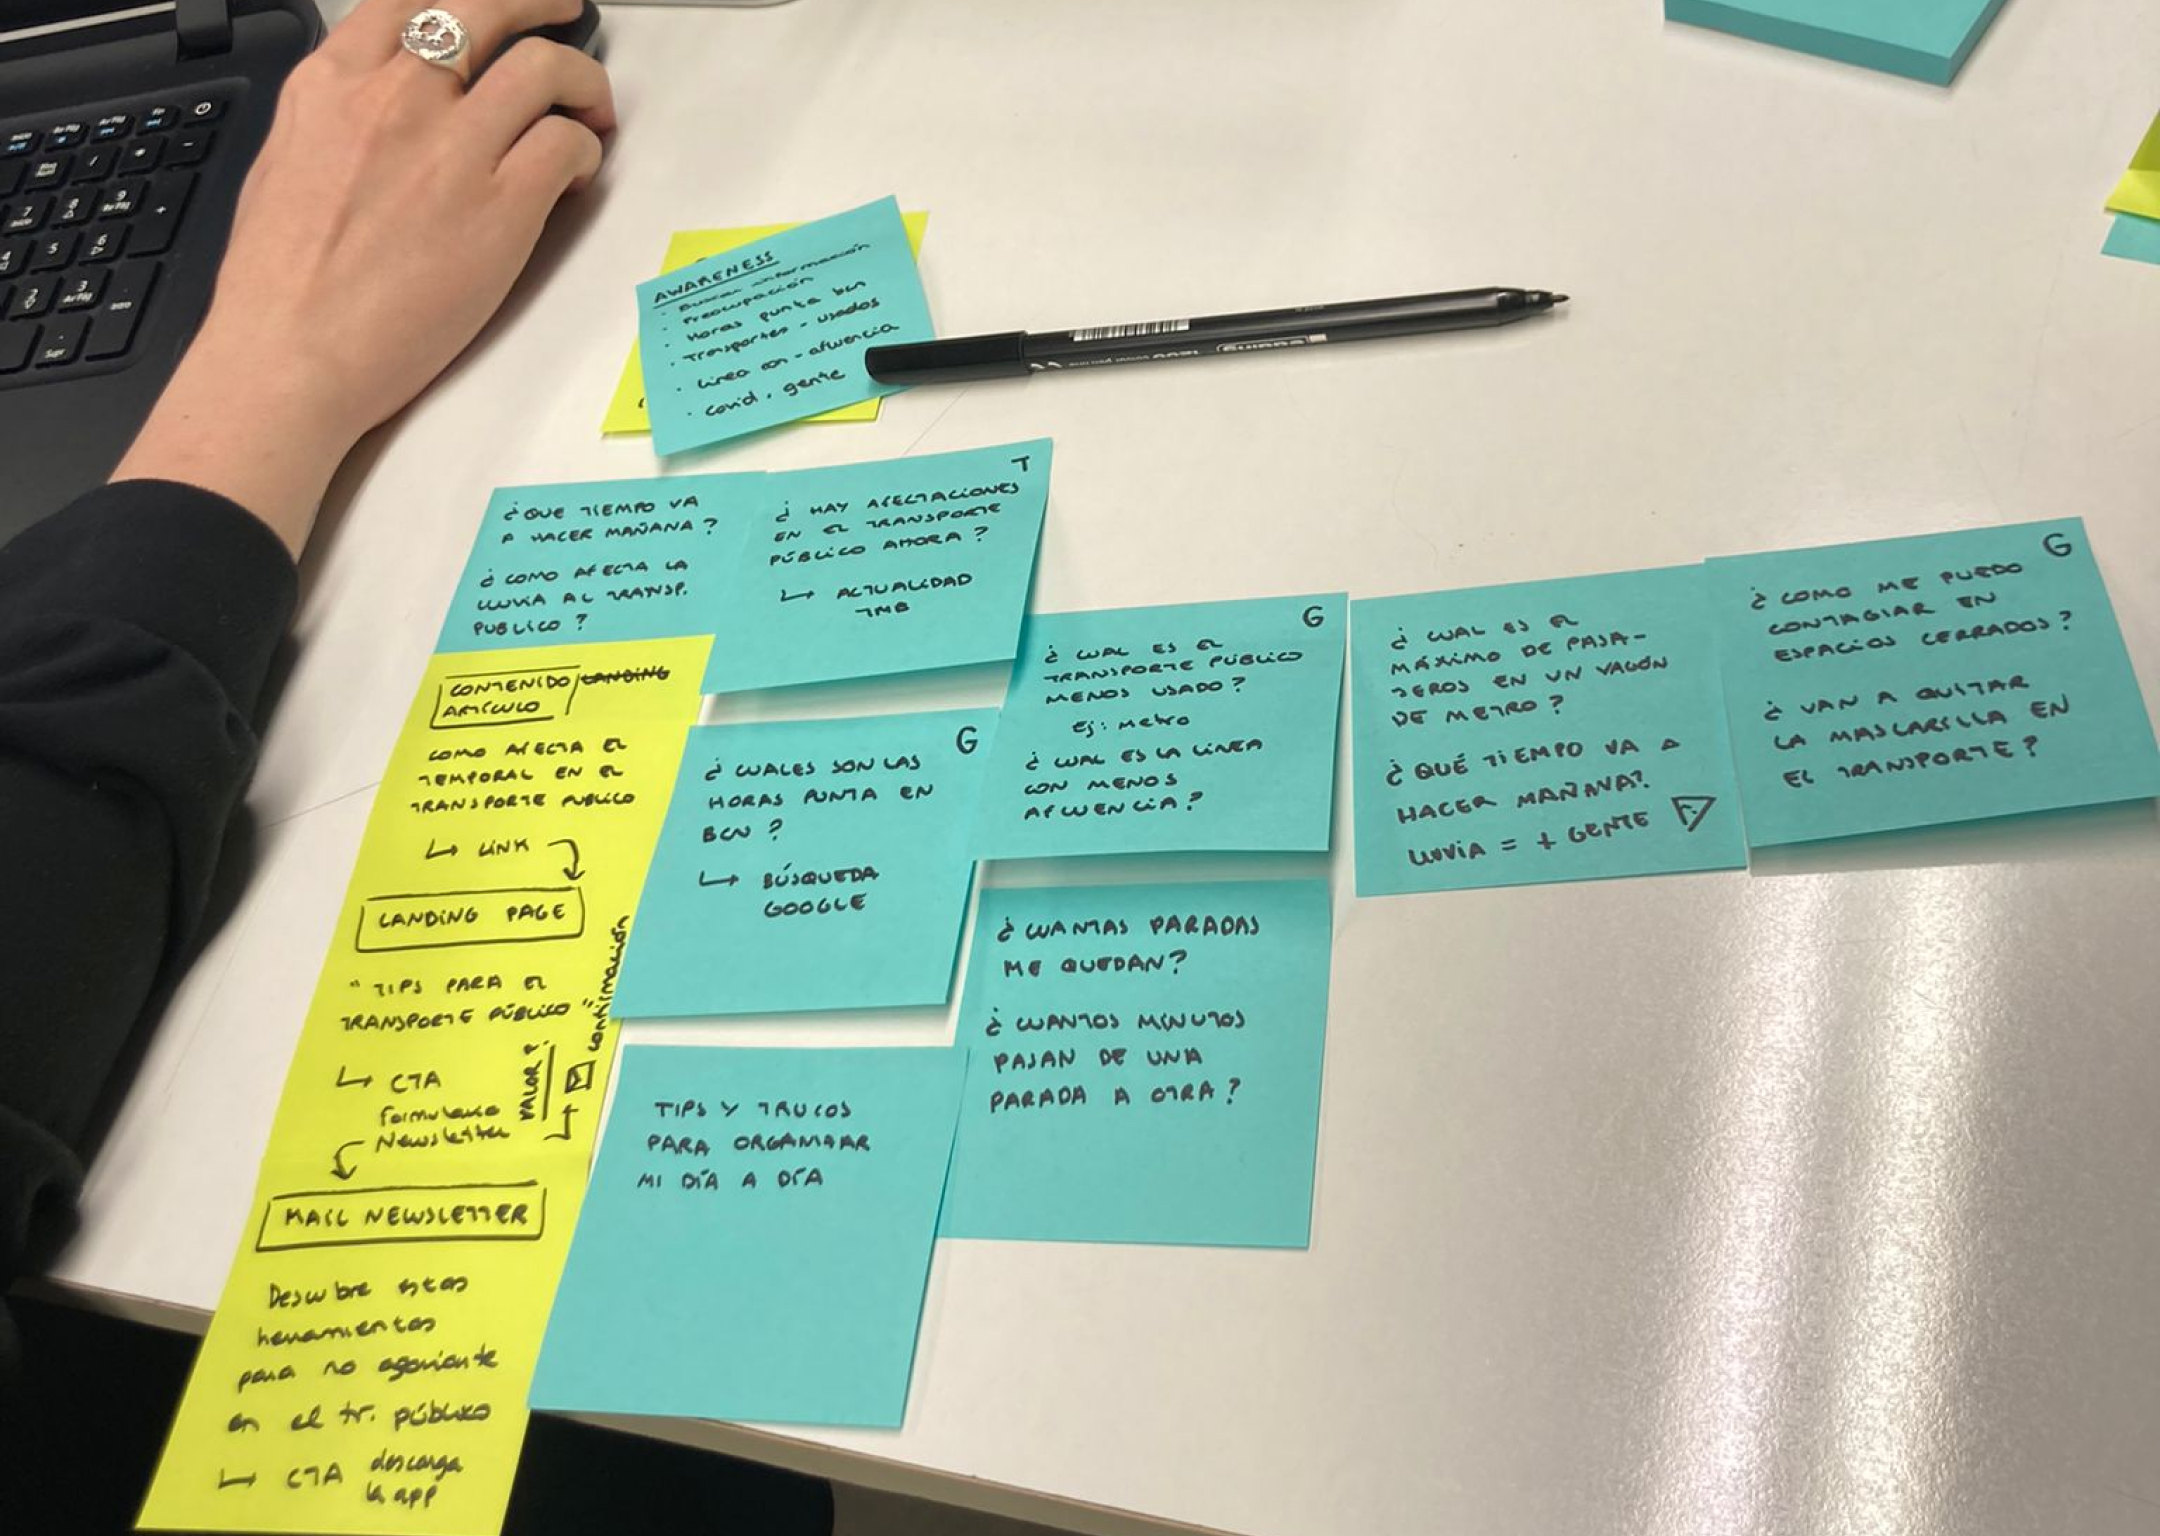 AWARENESS
· Buscar información
· Preocupación
· Horas punta bcn
· Transportes - usados
· Línea con - afluencia
· covid, gente
¿QUE TIEMPO VA
A HACER MAÑANA?
¿COMO AFECTA LA
LLUVIA AL TRANSP.
PUBLICO?
T
¿HAY AFECTACIONES
EN EL TRANSPORTE
PÚBLICO AHORA?
↳ ACTUALIDAD
TMB
CONTENIDO / LANDING
ARTÍCULO
COMO AFECTA EL
TEMPORAL EN EL
TRANSPORTE PUBLICO
↳ LINK
LANDING PAGE
"TIPS PARA EL
TRANSPORTE PÚBLICO"
↳ CTA
Formulario
Newsletter
VALOR?
confirmación
MAIL NEWSLETTER
Descubre estas
herramientas
para no agoviarte
en el tr. público
↳ CTA descarga
la app
G
¿CUALES SON LAS
HORAS PUNTA EN
BCN?
↳ BÚSQUEDA
GOOGLE
TIPS Y TRUCOS
PARA ORGANIZAR
MI DÍA A DÍA
G
¿CUAL ES EL
TRANSPORTE PÚBLICO
MENOS USADO?
Ej: Metro
¿CUAL ES LA LÍNEA
CON MENOS
AFLUENCIA?
¿CUANTAS PARADAS
ME QUEDAN?
¿CUANTOS MINUTOS
PASAN DE UNA
PARADA A OTRA?
¿CUAL ES EL
MÁXIMO DE PASA-
JEROS EN UN VAGÓN
DE METRO?
¿QUÉ TIEMPO VA A
HACER MAÑANA?
LLUVIA = + GENTE
G
¿COMO ME PUEDO
CONTAGIAR EN
ESPACIOS CERRADOS?
¿VAN A QUITAR
LA MASCARILLA EN
EL TRANSPORTE?